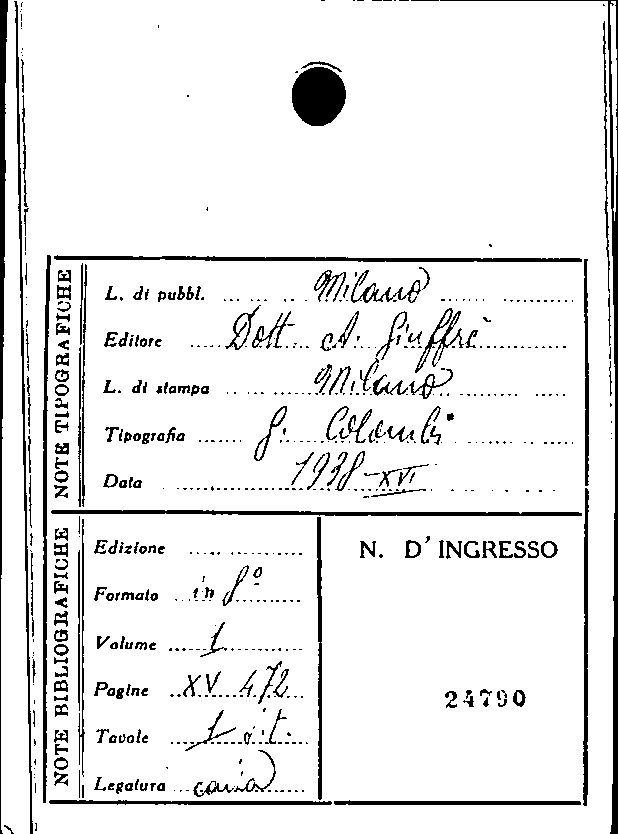 NOTE TIPOGRAFICHE
L. di pubbl. Milano
Editore Dott. A. Giuffrè
L. di stampa Milano
Tipografia G. Colombi
Data 1938-XVI
NOTE BIBLIOGRAFICHE
Edizione
Formato in 8º
Volume 1
Pagine XV 472
Tavole 1
Legatura
N. D'INGRESSO
24790